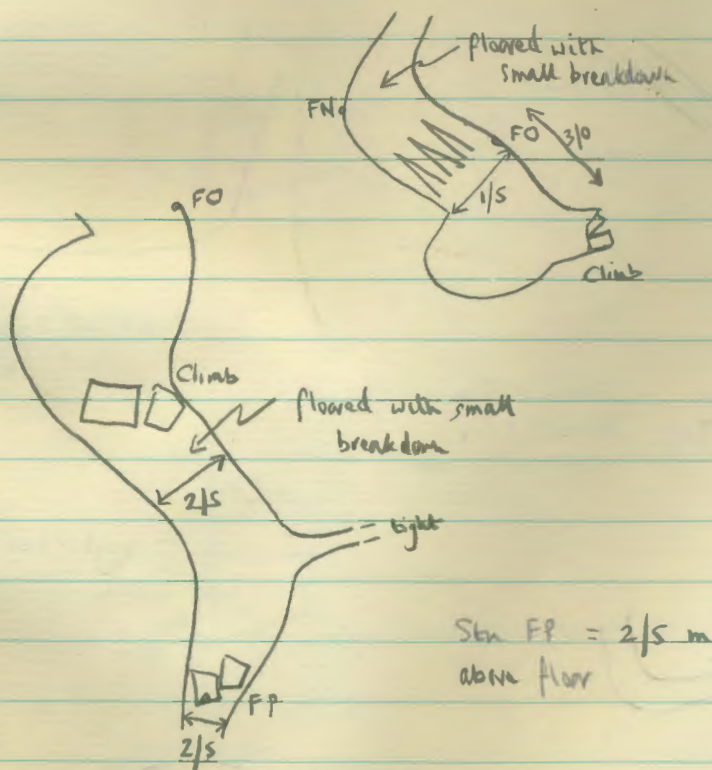 floored with
small breakdown
FN
FO
3/0
1/5
Climb
FO
Climb
floored with small
breakdown
2/5
tight
Stn FP = 2/5 m
above floor
FP
2/5